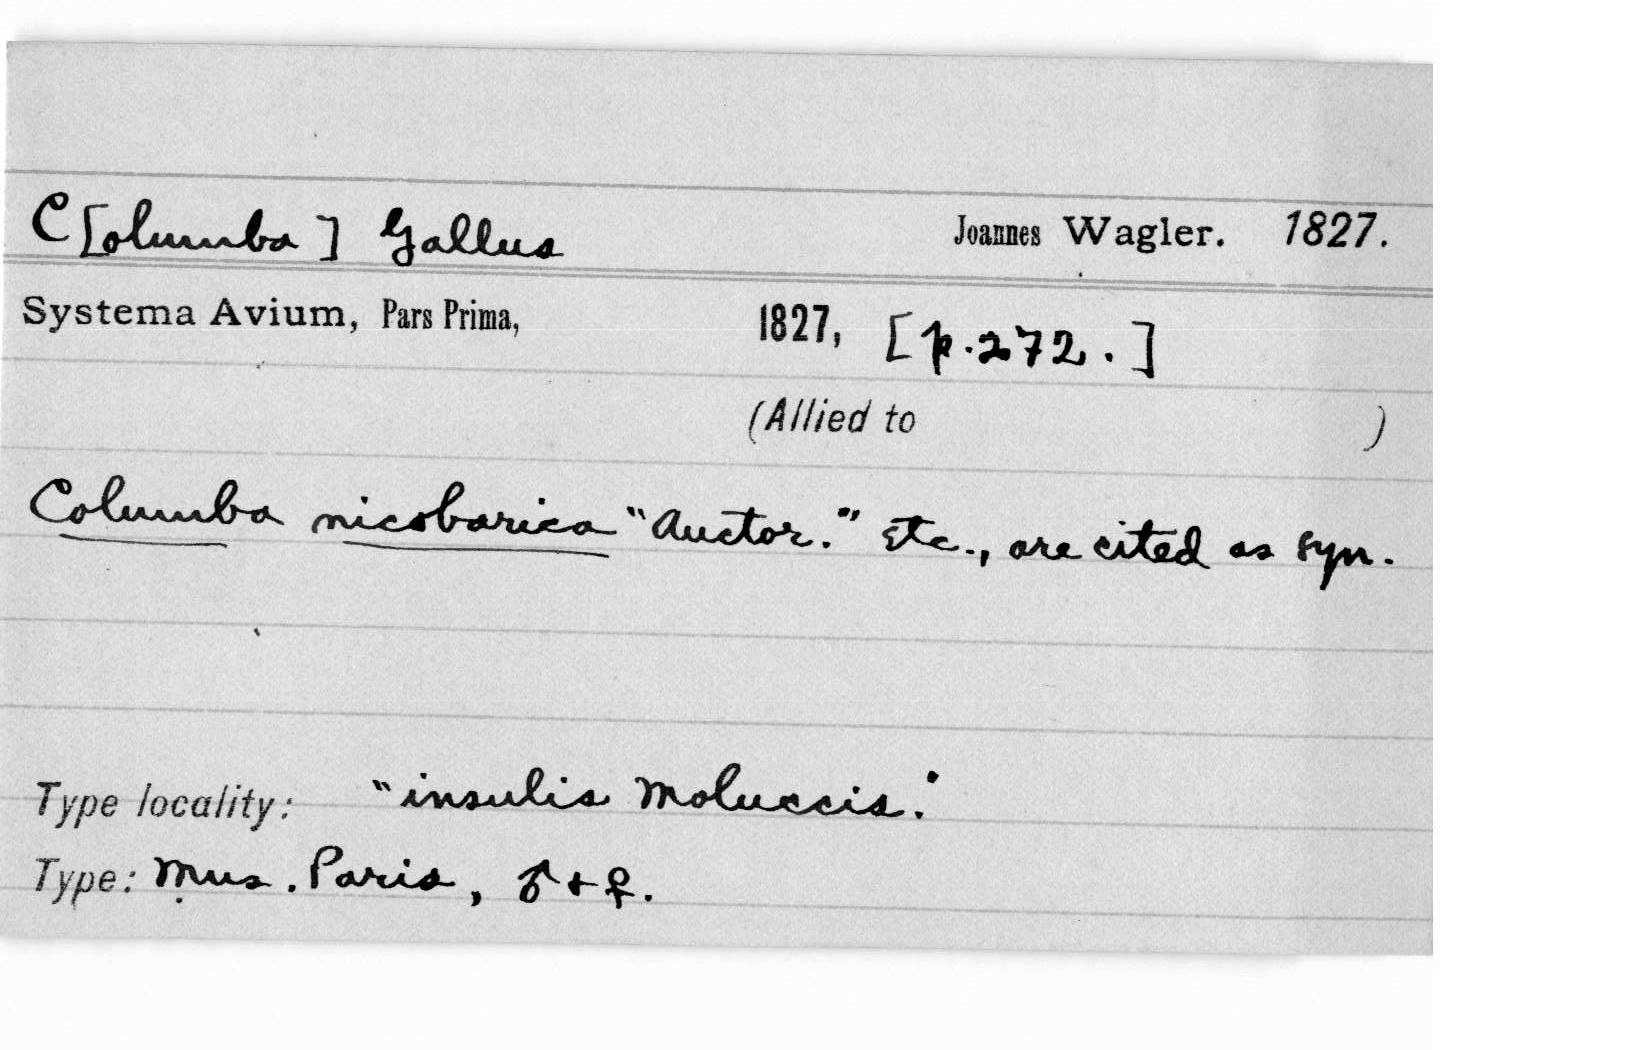 C[olumba] Gallus Joannes Wagler. 1827.
Systema Avium, Pars Prima, 1827, [p.272.]
(Allied to )
Columba nicobarica "Auctor." etc., are cited as syn.
Type locality: "insulis Moluccis."
Type: Mus. Paris, ♂+♀.